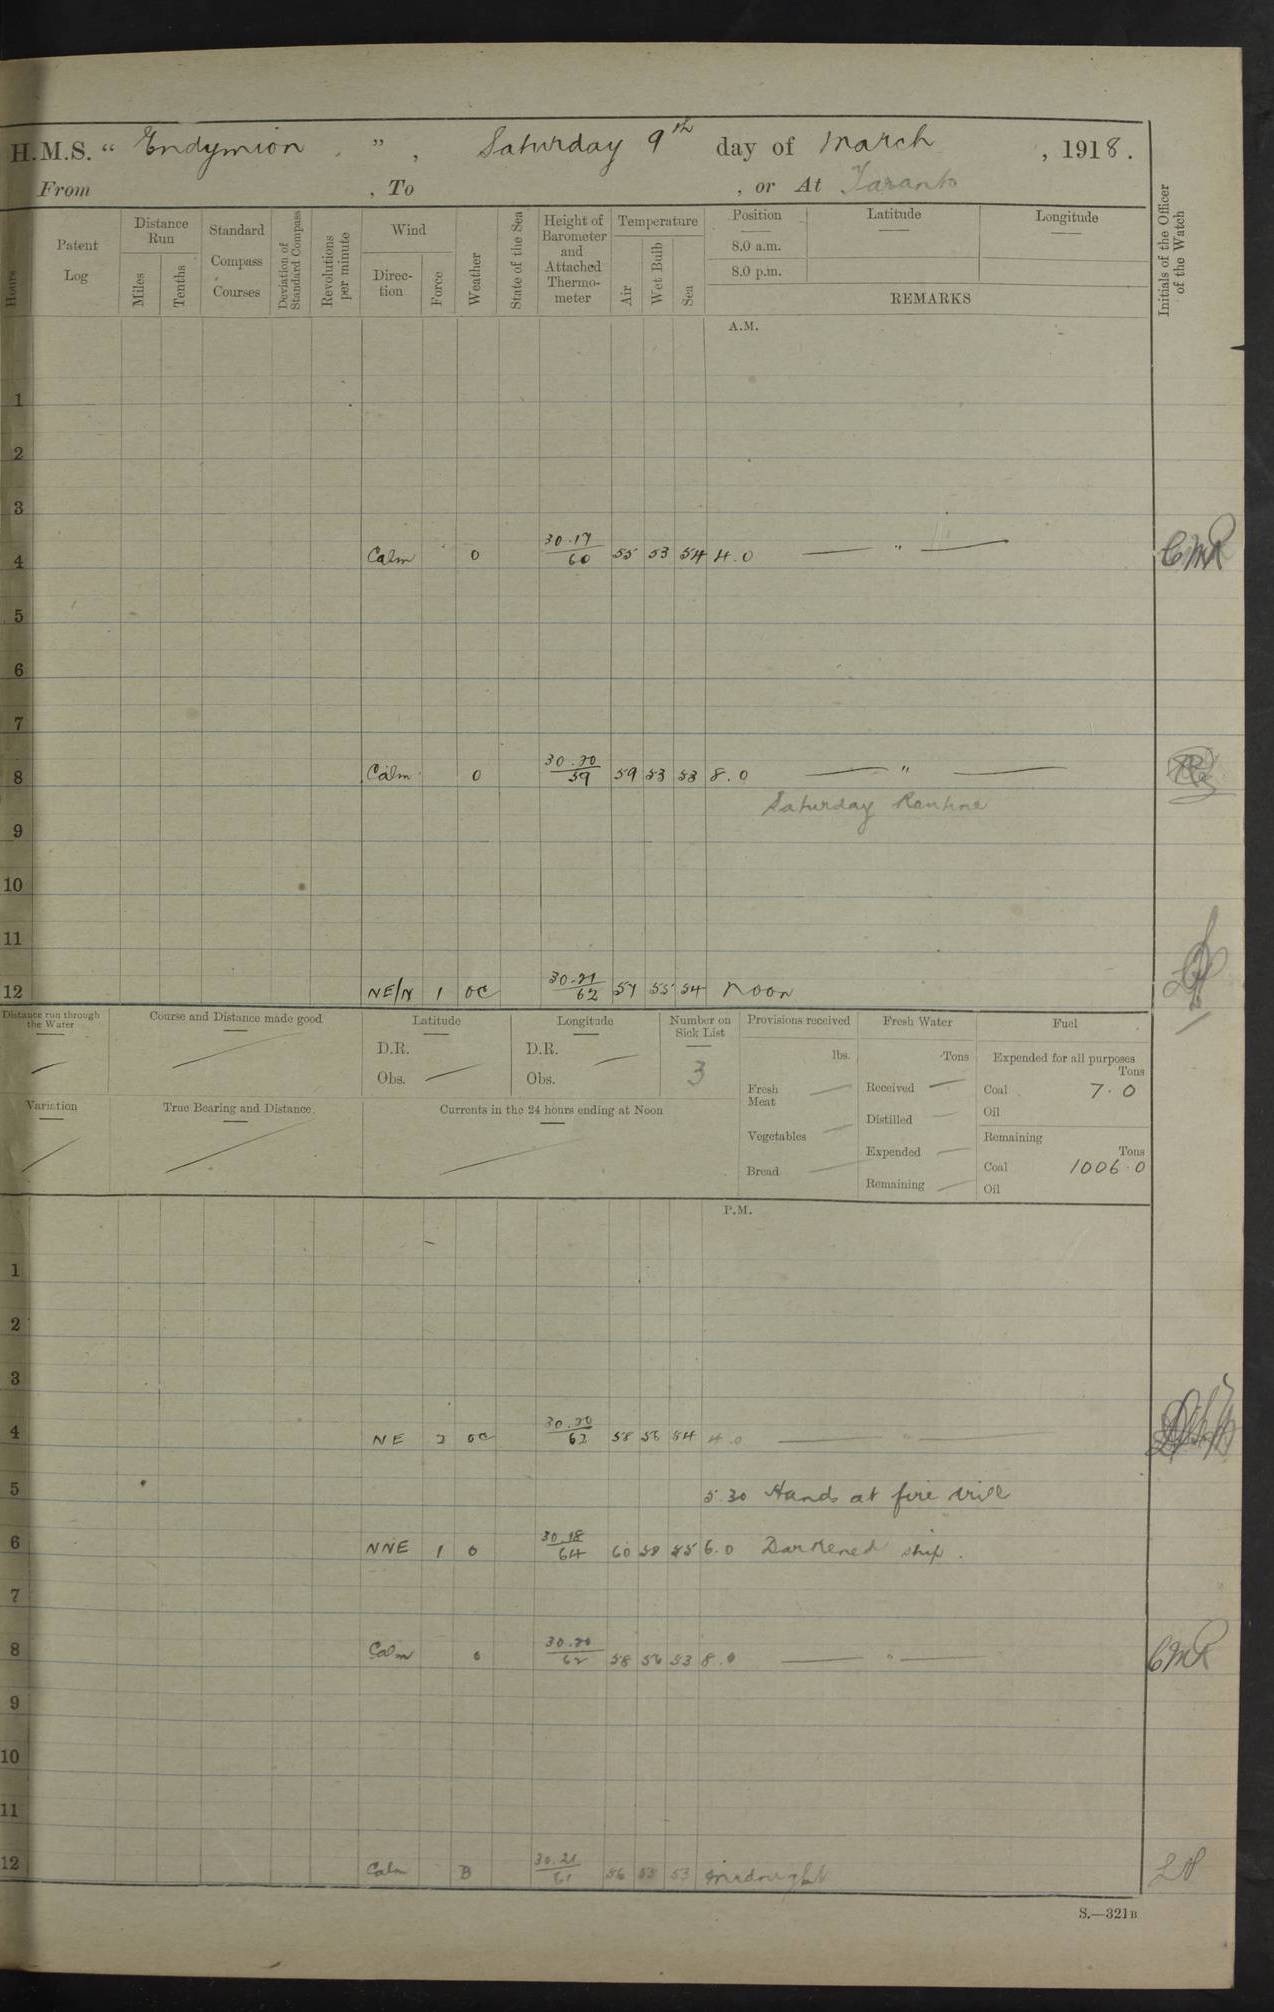 H.M.S. “ Endymion . ” , Saturday 9th day of March , 1918 .
From , To , or At Taranto
Hours
Patent Log
Distance Run
Miles
Tenths
Standard Compass Courses
Deviation of Standard Compass
Revolutions per minute
Wind
Direction
Force
Weather
State of the Sea
Height of Barometer and Attached Thermometer
Temperature
Air
Wet Bulb
Sea
Position
8.0 a.m.
8.0 p.m.
Latitude
Longitude
REMARKS
Initials of the Officer of the Watch
A.M.
1
2
3
4 Calm 0 30.17/60 55 53 54 4.0 — " — CMR
5
6
7
8 Calm 0 30.20/59 59 53 53 8.0 — " —
Saturday Routine
9
10
11
12 NE/N 1 OC 30.21/62 57 55 54 Noon
Distance run through the Water
Course and Distance made good
Latitude
D.R.
Obs.
Longitude
D.R.
Obs.
Number on Sick List
3
Provisions received
lbs.
Fresh Meat
Vegetables
Bread
Fresh Water
Tons
Received
Distilled
Expended
Remaining
Fuel
Expended for all purposes
Tons
Coal 7.0
Oil
Remaining
Tons
Coal 1006.0
Oil
Variation
True Bearing and Distance.
Currents in the 24 hours ending at Noon
P.M.
1
2
3
4 NE 2 OC 30.20/62 58 56 54 4.0 — " —
5 5.30 Hands at fire drill
6 NNE 1 0 30.18/64 60 58 55 6.0 Darkened ship.
7
8 Calm 0 30.20/62 58 56 53 8.0 — " — CMR
9
10
11
12 Calm B 30.21/61 56 55 53 Midnight
S.—321B